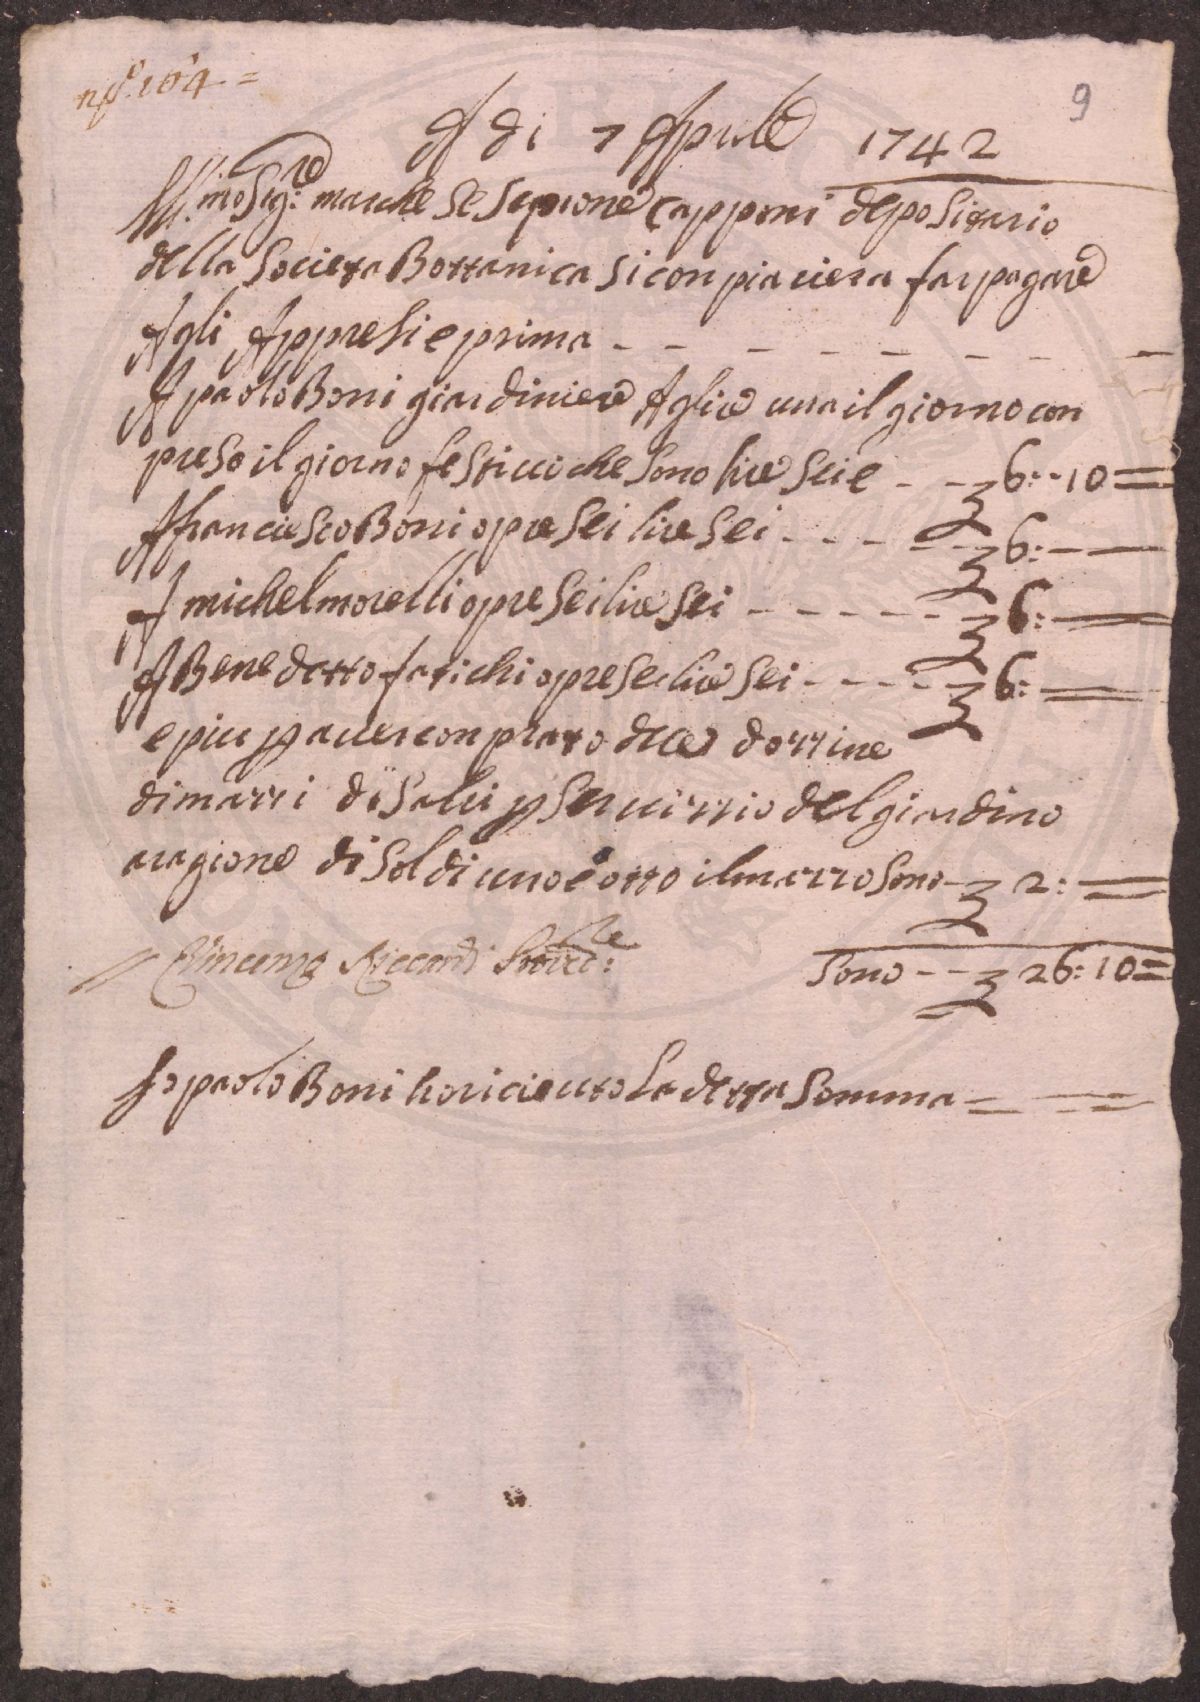 nº. 164 =
9
A di 7 Aprile 1742
Ill.mo Sig:re marchese Scipione Capponi depositario
della Societa Bottanica si con piaciera far pagare
Agli Appresi e prima - - - - - - - -
A paolo Boni giardiniere A lire una il giorno con
preso il giorno festiuo che sono lire sei e - - 6: - 10 =
A franciesco Boni opre sei lire sei - - - - 6: - -
A michel morelli opre sei lire sei - - - - - - 6: =
A Benedetto fatichi opre sei lire sei - - - - - 6: =
e piu p auer con prato dieci dozzine
di mazzi di Salci p seruizzio del giardino
a ragione di soldi uno e otto il mazzo sono - 2: =
Vincenzo Riccardi
Sono - - 26: 10 =
Io paolo Boni ho riceuto La detta Somma = = =